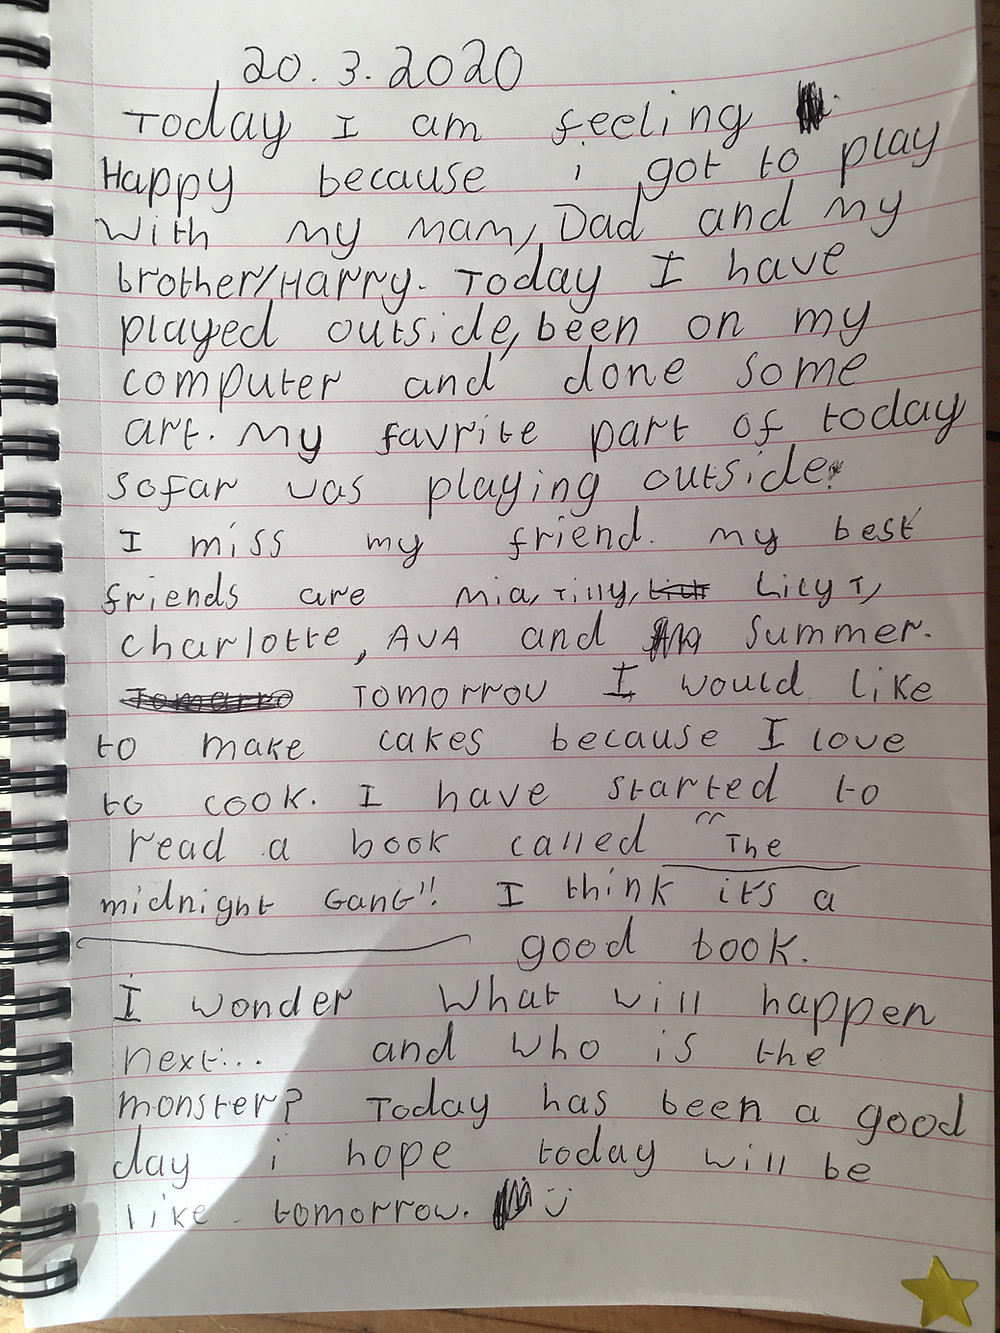 20.3.2020
Today I am feeling
Happy because i got to play
With my mam, Dad and my
brother/Harry. Today I have
played outside, been on my
computer and done some
art. My favrite part of today
sofar was playing outside.
I miss my friend. my best
friends are mia, Tilly, Lilly T,
charlotte, AVA and summer.
Tomarro Tomorrow I would like
to make cakes because I love
to cook. I have started to
read a book called "The
midnight GanG" I think it's a
good book.
I wonder What will happen
next... and who is the
monster? Today has been a good
day i hope today will be
like tomorrow. :)